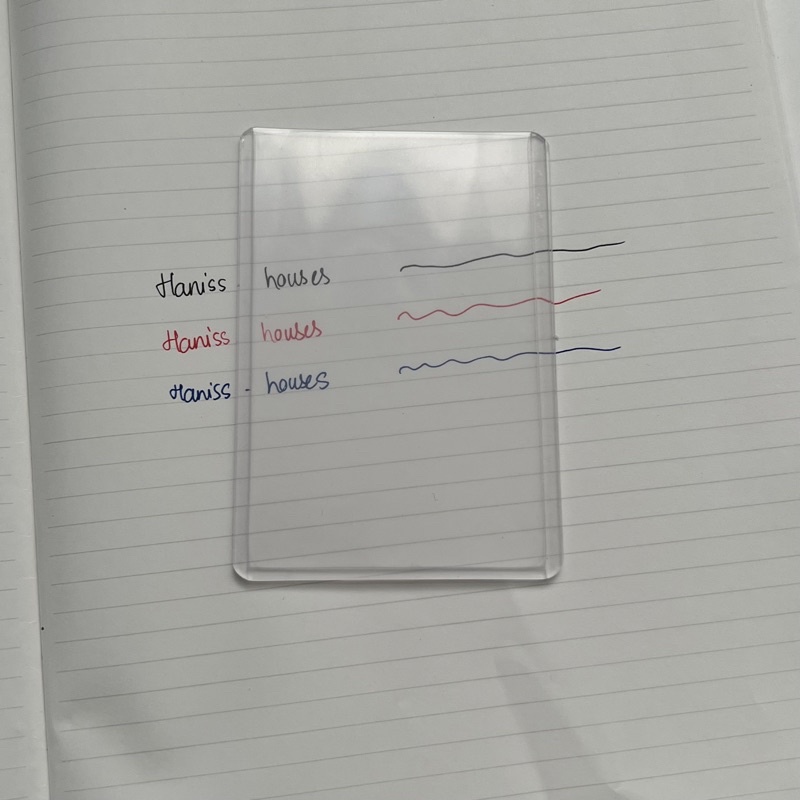 Haniss - houses
Haniss houses
Haniss - houses